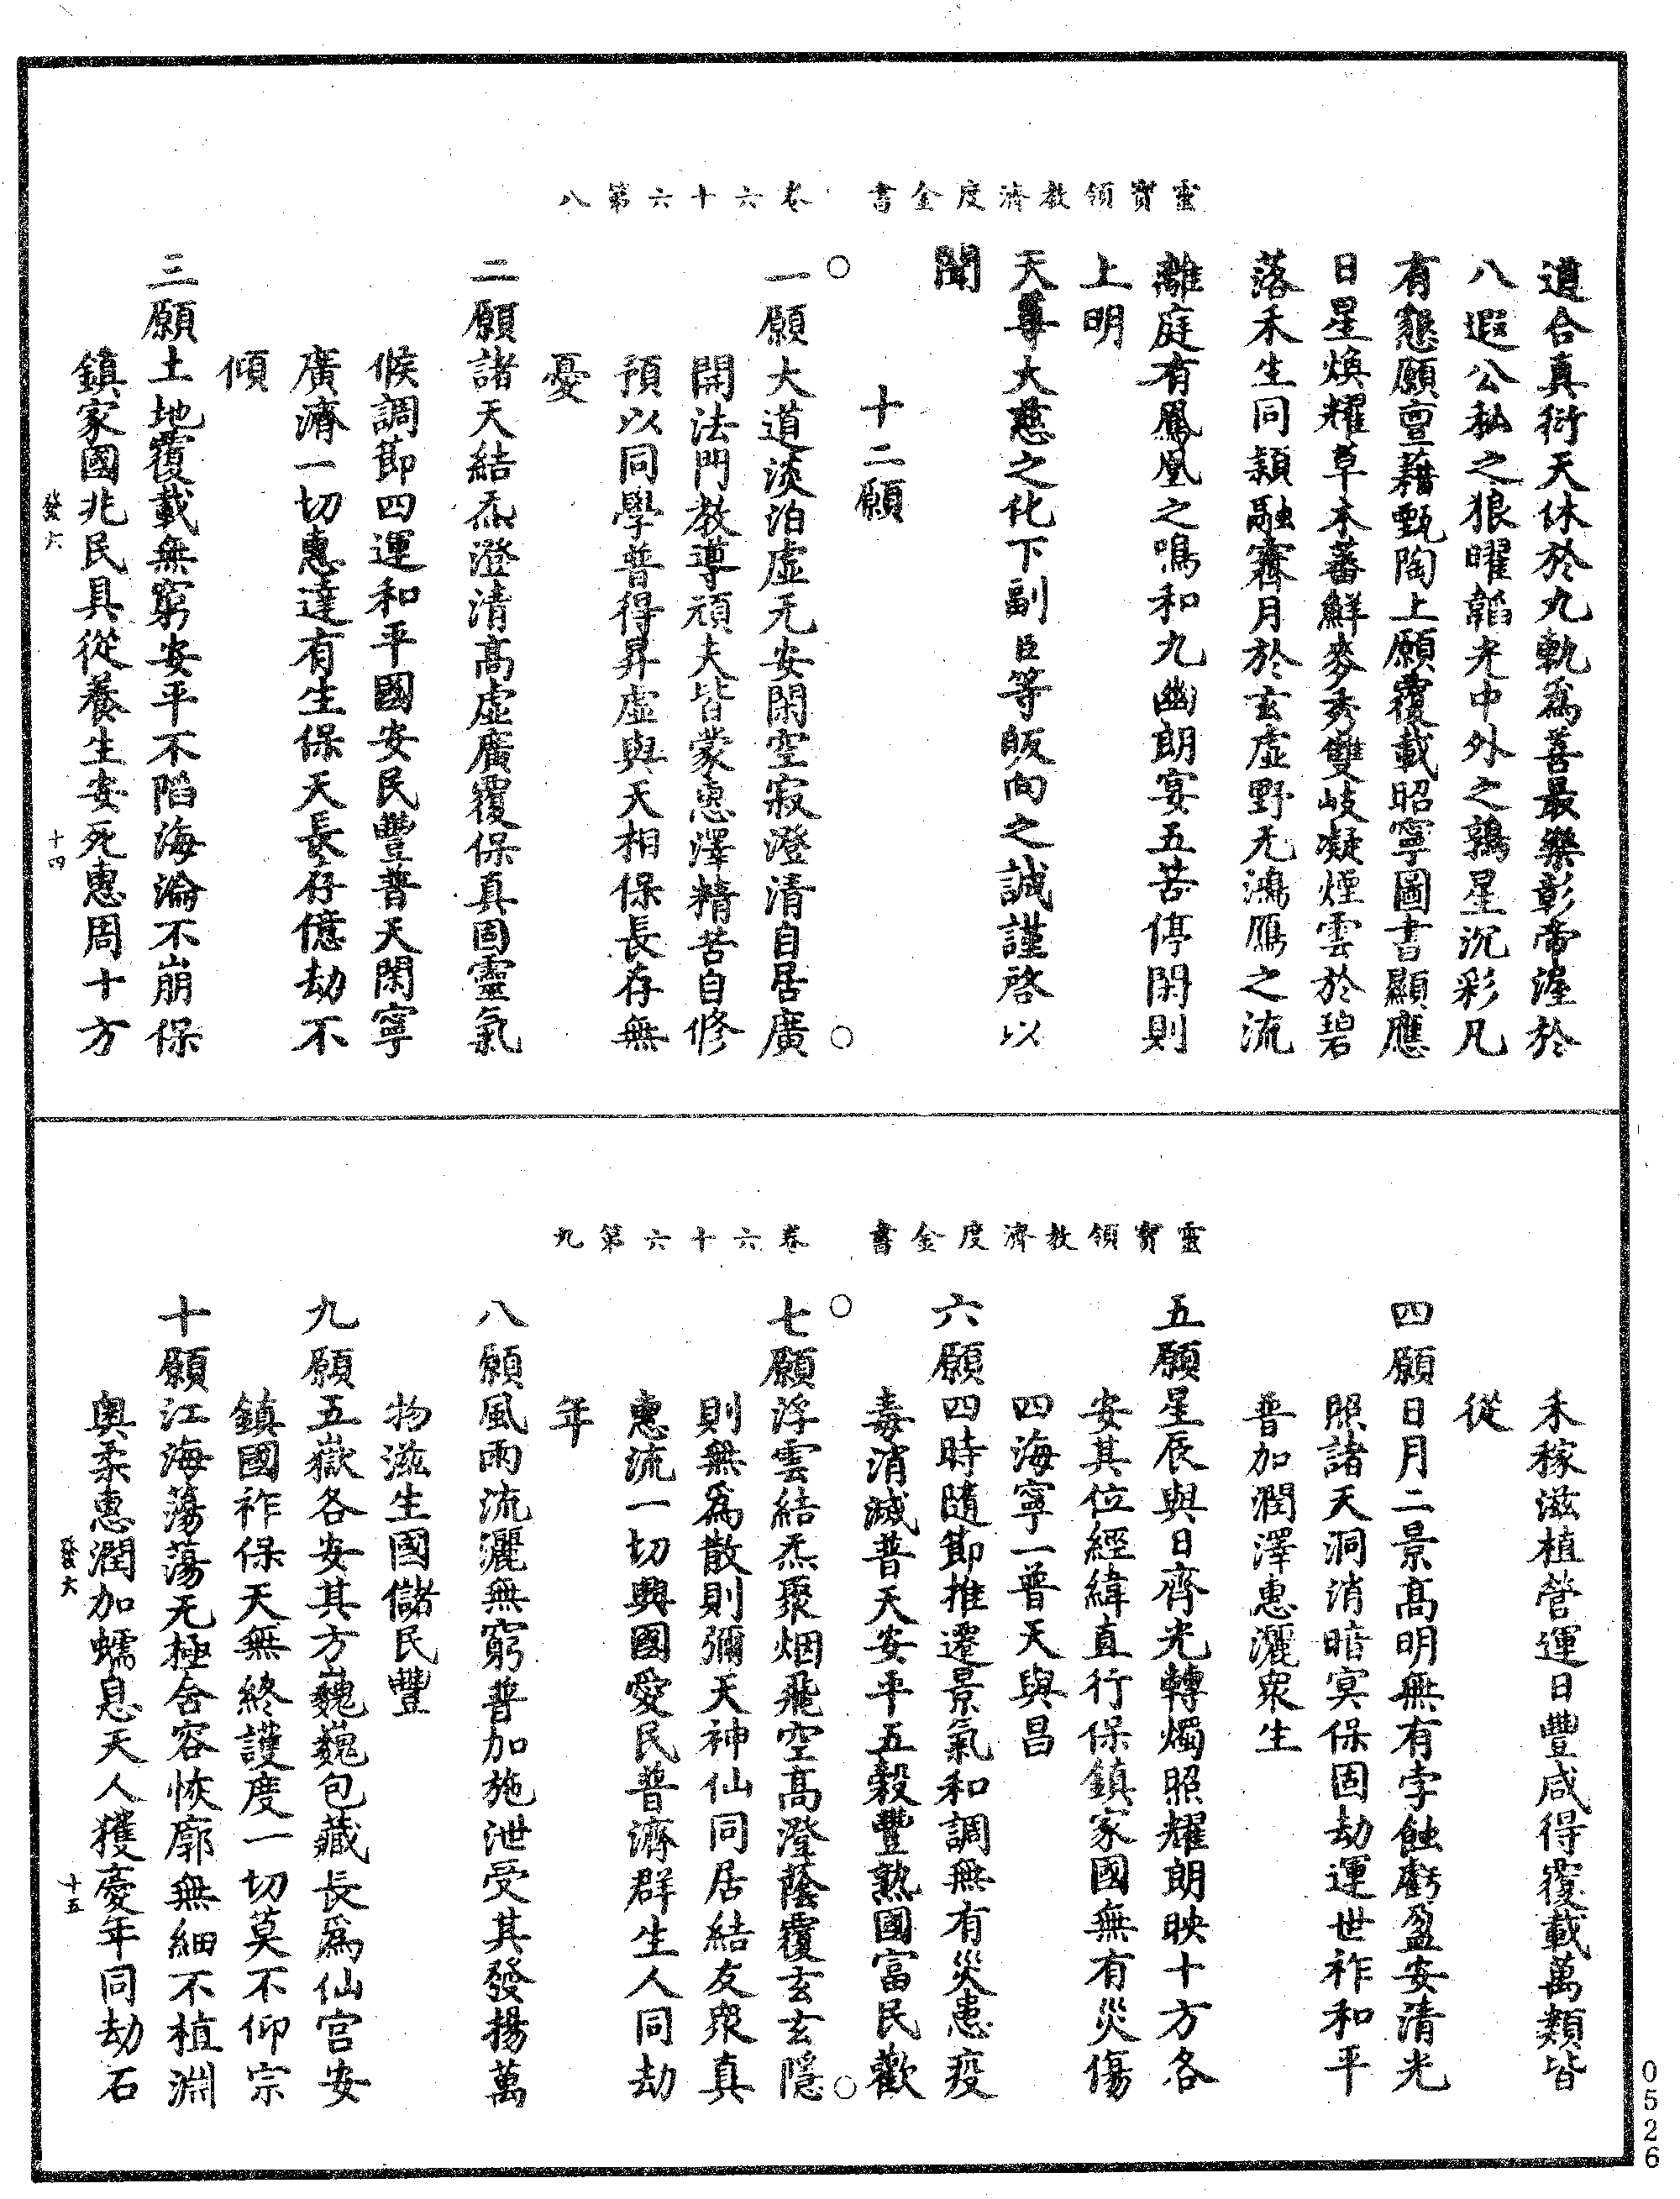 靈寶領教濟度金書　卷六十六第八
道合真衍天休於九軌爲善最樂彰帝渥於
八遐公私之狼曜韜光中外之鶉星沉彩凡
有懇願亶藉甄陶上願覆載昭寧圖書顯應
日星煥耀草木蕃鮮麥秀雙岐凝煙雲於碧
落禾生同穎融霽月於玄虛野无鴻鴈之流
離庭有鳳凰之鳴和九幽朗宴五苦停閑則
上明
天尊大慈之化下副臣等皈向之誠謹啓以
聞
十二願
一願大道淡泊虛无安閑空寂澄清自居廣
開法門教導頑夫皆蒙惠澤精苦自修
預以同學普得昇虛與天相保長存無
憂
二願諸天結炁澄清高虛廣覆保真固靈氣
候調節四運和平國安民豐普天閑寧
廣濟一切惠達有生保天長存億劫不
傾
三願土地覆載無窮安平不陷海淪不崩保
鎮家國兆民具從養生安死惠周十方
發六
十四
靈寶領教濟度金書　卷六十六第九
禾稼滋植營運日豐咸得覆載萬類皆
從
四願日月二景高明無有孛蝕虧盈安清光
照諸天洞消暗冥保固劫運世祚和平
普加潤澤惠灑衆生
五願星辰與日齊光轉燭照耀朗映十方各
安其位經緯直行保鎮家國無有災傷
四海寧一普天與昌
六願四時隨節推遷景氣和調無有災患疫
毒消滅普天安平五穀豐熟國富民歡
七願浮雲結炁聚烟飛空高澄蔭覆玄玄隱
則無爲散則彌天神仙同居結友衆真
惠流一切興國愛民普濟群生人同劫
年
八願風雨流灑無窮普加施泄受其發揚萬
物滋生國儲民豐
九願五嶽各安其方巍巍包藏長爲仙宫安
鎮國祚保天無終護度一切莫不仰宗
十願江海蕩蕩无極含容恢廓無細不植淵
奧柔惠潤加蠕息天人獲慶年同劫石
發六
十五
0526